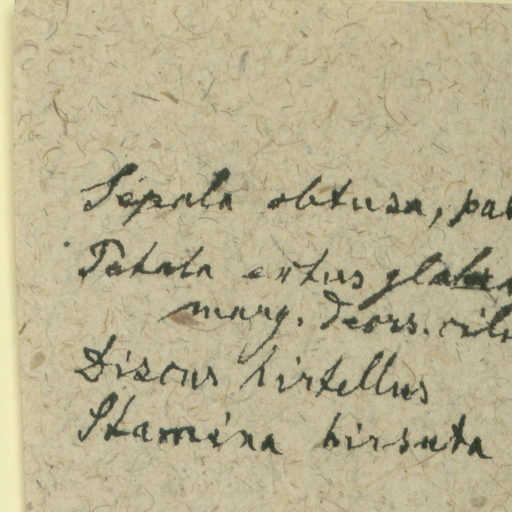 Sepala obtusa, pat
Petala extus glabra
marg. deors. cili
Discus hirtellus
Stamina hirsuta